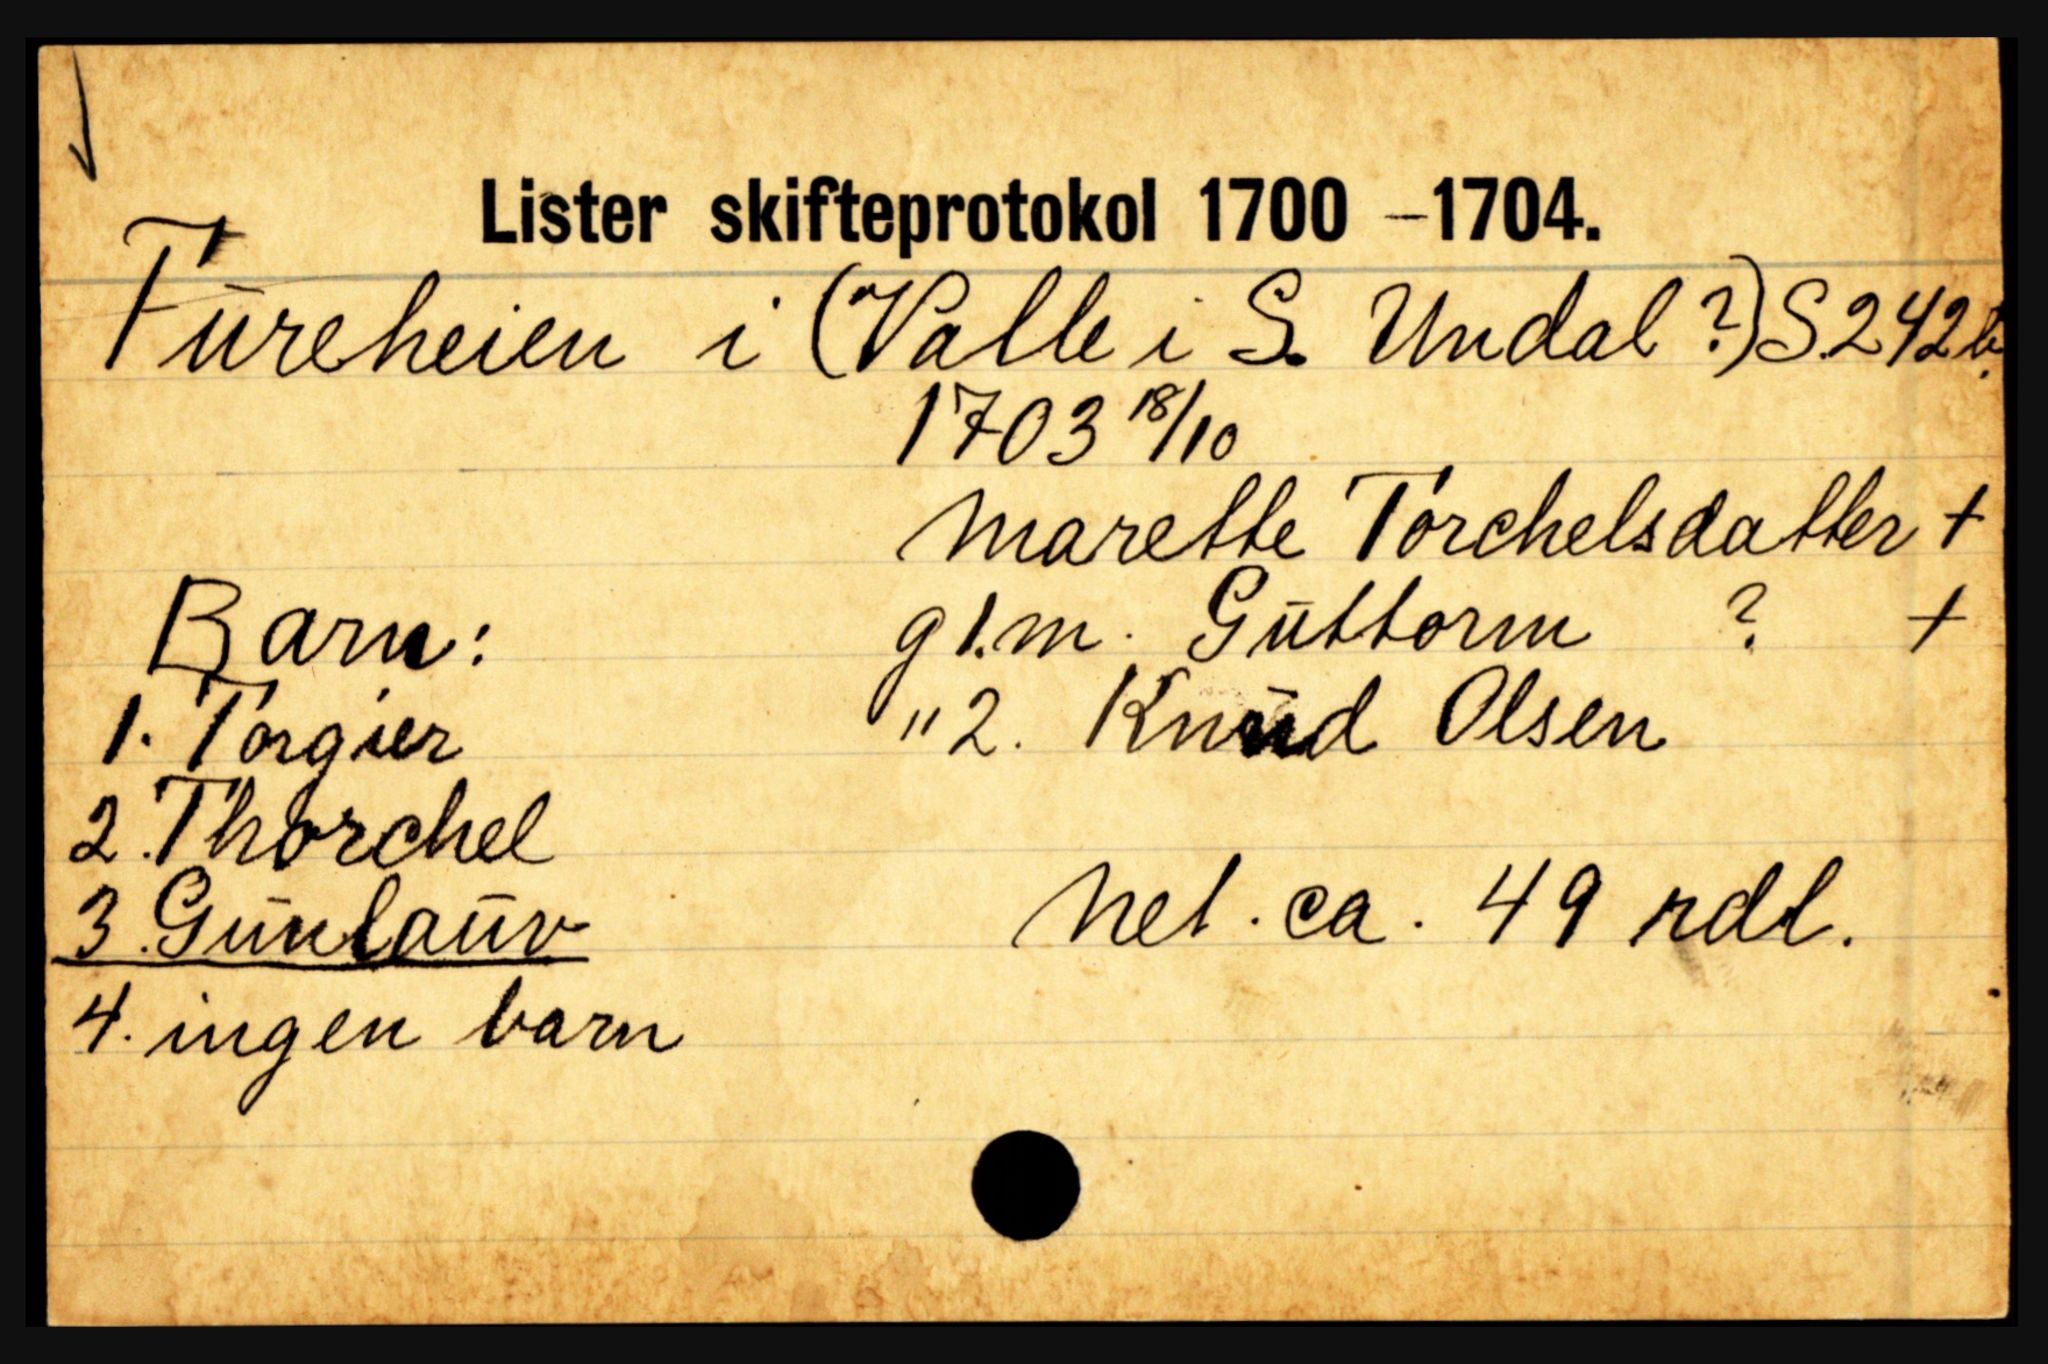 Lister skifteprotokol 1700 -1704.
Fureheien i (Valle i S. Undal ?) S.242b.
1703 18/10
Marette Torchelsdatter +
Barn: g 1.m. Guttorm ? +
1. Torgier " 2. Knud Olsen
2. Thorchel
3. Gunlauv Net. ca. 49 rdl.
4. ingen barn